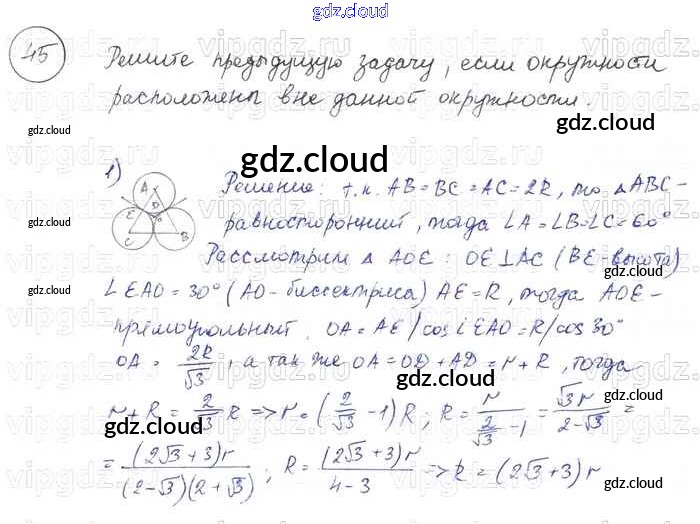 gdz.cloud
45
Решите предыдущую задачу, если окружности
расположены вне данной окружности.
gdz.cloud
gdz.cloud
gdz.cloud
1)
A
D
E
C
B
Решение: т.к. AB = BC = AC = 2R, то △ABC -
равносторонний, тогда ∠A = ∠B = ∠C = 60°
gdz.cloud
Рассмотрим △ AOE : OE⊥AC (BE - высота)
∠EAO = 30° (AO - биссектриса) AE = R, тогда AOE -
gdz.cloud
прямоугольный. OA = AE / cos∠EAO = R / cos 30°
OA = 2R/√3, а так же OA = OD + AD = r + R, тогда
gdz.cloud
gdz.cloud
r + R = 2/√3 R => r = (2/√3 - 1) R ; R = r/(2/√3 - 1) = √3r/(2-√3) =
= (2√3 + 3)r/(2-√3)(2+√3) ; R = (2√3 + 3)r/(4-3) => R = (2√3 + 3) r
gdz.cloud
gdz.cloud
gdz.cloud